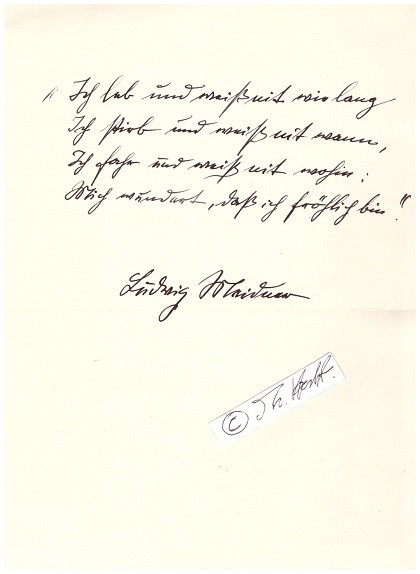 „Ich leb und weiß nit wie lang
Ich stirb und weiß nit wann,
Ich fahr und weiß nit wohin:
Mich wundert, daß ich fröhlich bin."
Ludwig Meidner
©